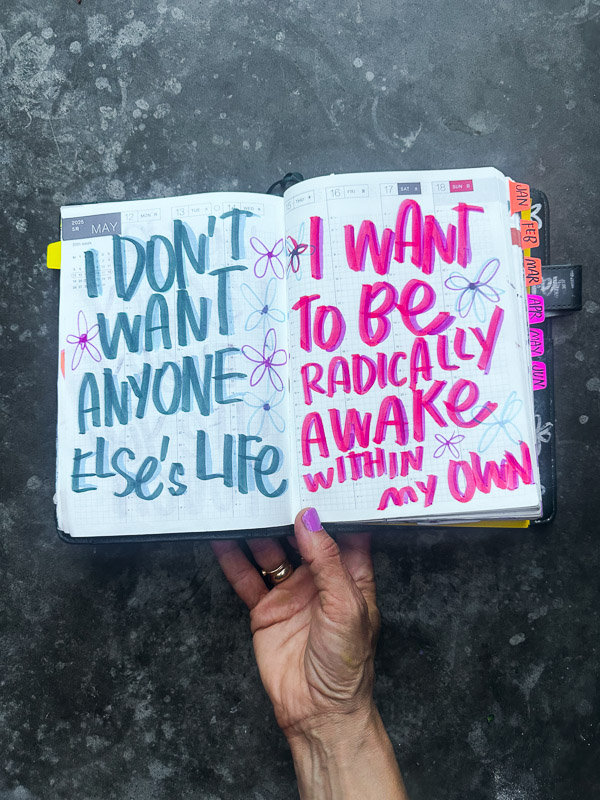 2025
MAY
12 MON
13 TUE
14 WED
16 FRI
17 SAT
18 SUN
I DON'T
WANT
ANYONE
ELSE'S LIFE
I WANT
TO BE
RADICALLY
AWAKE
WITHIN
MY OWN
JAN
FEB
MAR
APR
MAY
JUN